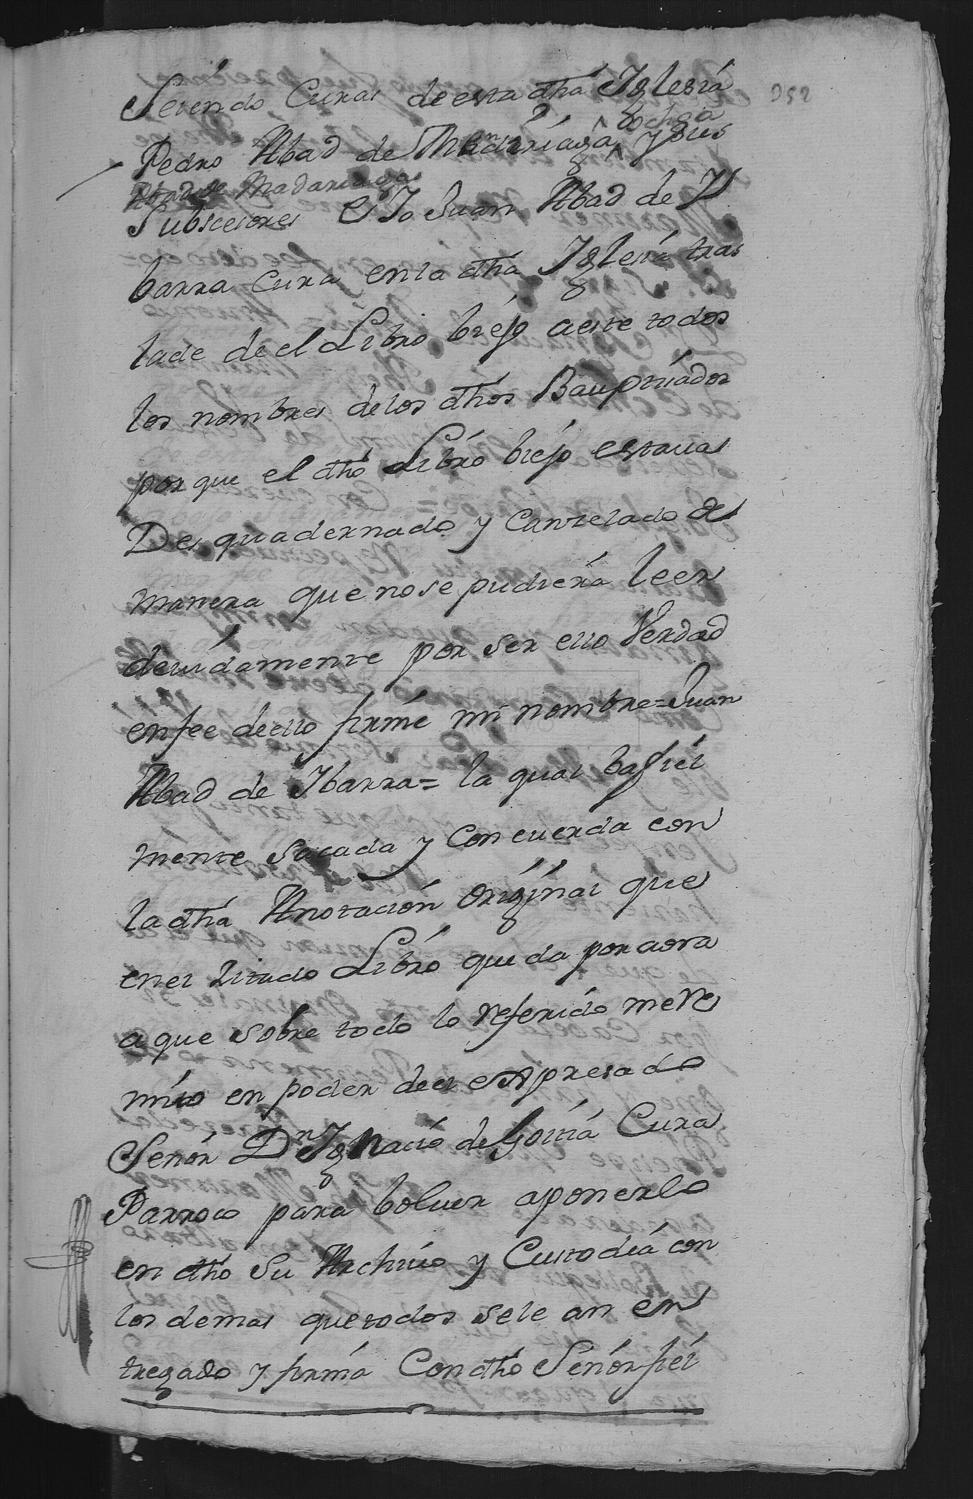 352
Seiendo Curas de esta dha Yglesia
Ochoa
Pedro Abad de Madariaga, y sus
Abad de Madariaga
Subscesores E Yo Juan Abad de Y
barra Cura en la dha Yglesia tras
lade de el Libro biejo a este todos
los nombres de los dhos Baupriados
por que el dho Libro biejo estauas
Des quadernado y Canzelado de
manera que no se pudiera leer
deuidamente por ser ello Verdad
en fee de ello firmé mi nombre = Juan
Abad de Ybarra = la qual ba fiel
mente sacada y Concuerda con
la dha Anotación Original que
en el Zitado Libro queda por aora
a que sobre todo lo referido me re
mito en poder de el expresado
Señor Dn Ygnacio de Goitia Cura
Parroco para boluer a ponerlo
en dho su Archiuo y Custodia con
los demas que todos se le an en
tregado y firma Con dho Señor fiel